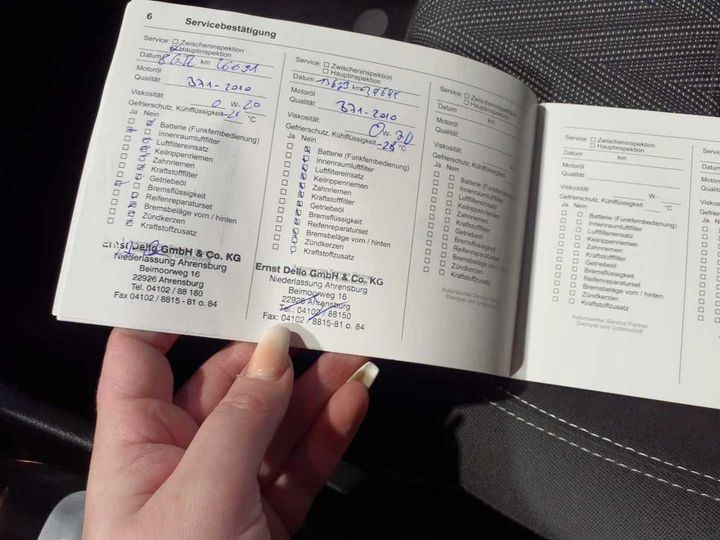 6 Servicebestätigung
Service: Zwischeninspektion
Hauptinspektion
Datum km 26091
Motoröl
Qualität: B71-2010
Viskosität: 0 W- 20
Gefrierschutz, Kühlflüssigkeit -25 °C
Ja Nein
Batterie (Funkfernbedienung)
Innenraumluftfilter
Luftfiltereinsatz
Keilrippenriemen
Zahnriemen
Kraftstofffilter
Getriebeöl
Bremsflüssigkeit
Reifenreparaturset
Bremsbeläge vorn / hinten
Zündkerzen
Kraftstoffzusatz
Ernst Dello GmbH & Co. KG
Niederlassung Ahrensburg
Beimoorweg 16
22926 Ahrensburg
Tel. 04102 / 88 180
Fax 04102 / 8815 - 81 o. 84
Service: Zwischeninspektion
Hauptinspektion
Datum km
Motoröl
Qualität: B71-2010
Viskosität: 0 W-
Gefrierschutz, Kühlflüssigkeit -28 °C
Ja Nein
Batterie (Funkfernbedienung)
Innenraumluftfilter
Luftfiltereinsatz
Keilrippenriemen
Zahnriemen
Kraftstofffilter
Getriebeöl
Bremsflüssigkeit
Reifenreparaturset
Bremsbeläge vorn / hinten
Zündkerzen
Kraftstoffzusatz
Ernst Dello GmbH & Co. KG
Niederlassung Ahrensburg
Beimoorweg 16
22926 Ahrensburg
Tel.: 04102 / 88150
Fax: 04102 / 8815-81 o. 84
Service: Zwischeninspektion
Hauptinspektion
Datum km
Motoröl
Qualität:
Viskosität: W-
Gefrierschutz, Kühlflüssigkeit °C
Ja Nein
Batterie (Funkfernbedienung)
Innenraumluftfilter
Luftfiltereinsatz
Keilrippenriemen
Zahnriemen
Kraftstofffilter
Getriebeöl
Bremsflüssigkeit
Reifenreparaturset
Bremsbeläge vorn / hinten
Zündkerzen
Kraftstoffzusatz
Autorisierter Service Partner
Stempel und Unterschrift
Service: Zwischeninspektion
Hauptinspektion
Datum km
Motoröl
Qualität:
Viskosität: W-
Gefrierschutz, Kühlflüssigkeit °C
Ja Nein
Batterie (Funkfernbedienung)
Innenraumluftfilter
Luftfiltereinsatz
Keilrippenriemen
Zahnriemen
Kraftstofffilter
Getriebeöl
Bremsflüssigkeit
Reifenreparaturset
Bremsbeläge vorn / hinten
Zündkerzen
Kraftstoffzusatz
Autorisierter Service Partner
Stempel und Unterschrift